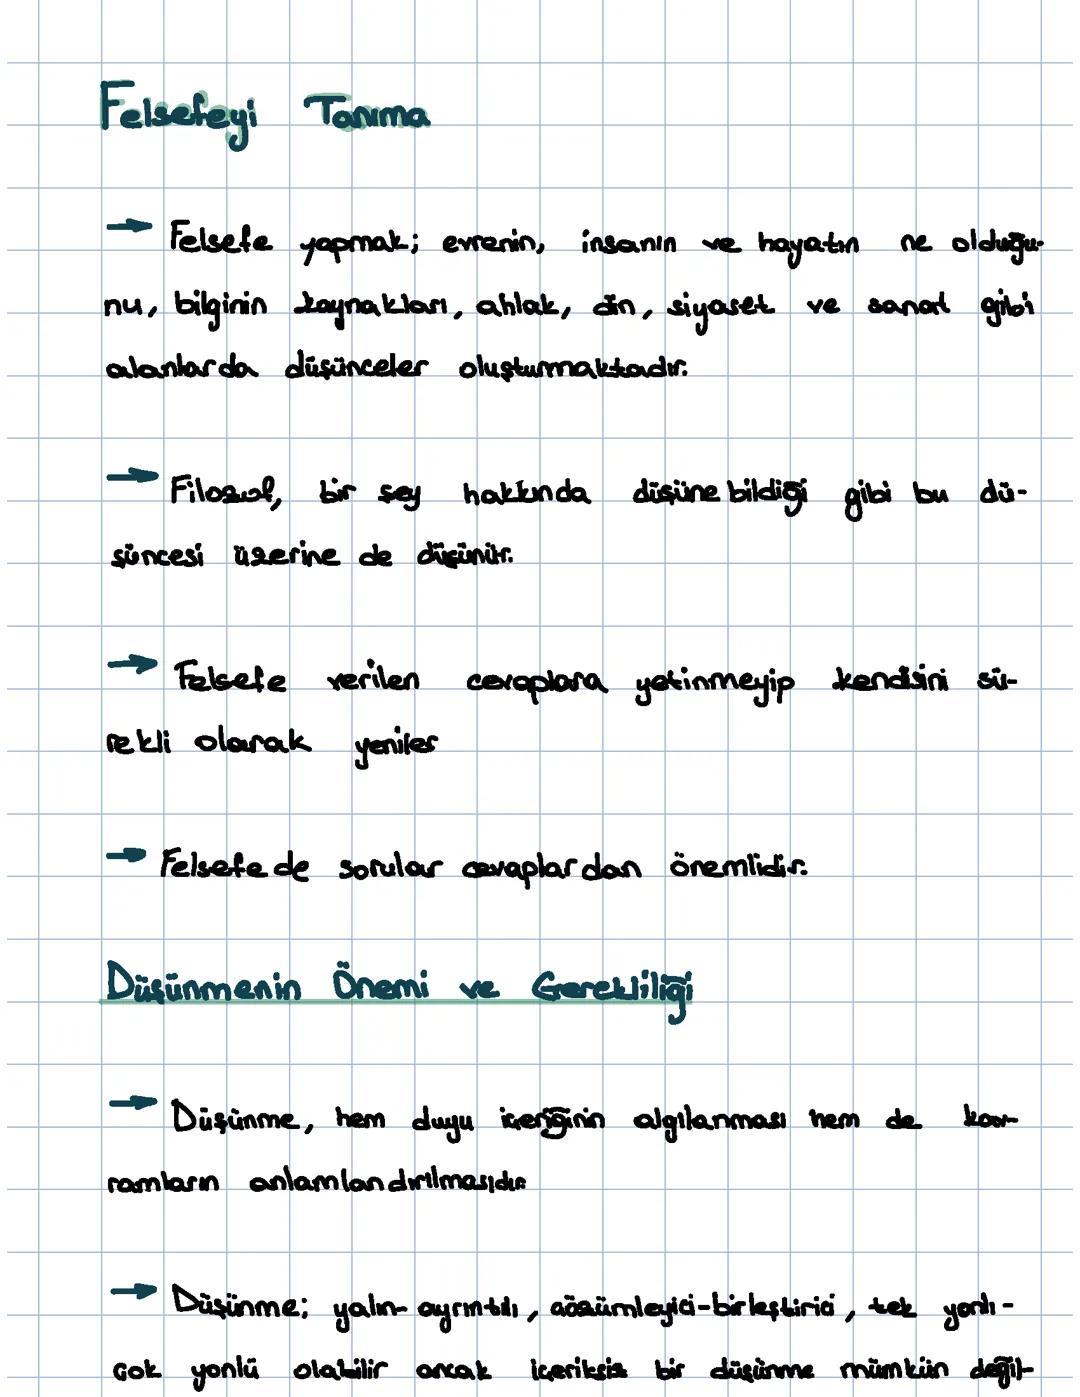 Felsefeyi Tanıma
→ Felsefe yapmak; evrenin, insanın ve hayatın ne olduğu-
nu, bilginin kaynakları, ahlak, din, siyaset ve sanat gibi
alanlarda düşünceler oluşturmaktadır.
→ Filozof, bir şey hakkında düşünebildiği gibi bu dü-
şüncesi üzerine de düşünür.
→ Felsefe verilen cevaplara yetinmeyip kendisini sü-
rekli olarak yeniler
→ Felsefede sorular cevaplardan önemlidir.
Düşünmenin Önemi ve Gerekliliği
→ Düşünme, hem duyu içeriğinin algılanması hem de kav-
ramların anlamlandırılmasıdır.
→ Düşünme; yalın-ayrıntılı, çözümleyici-birleştirici, tek yönlı-
çok yönlü olabilir ancak içeriksiz bir düşünme mümkün değil-